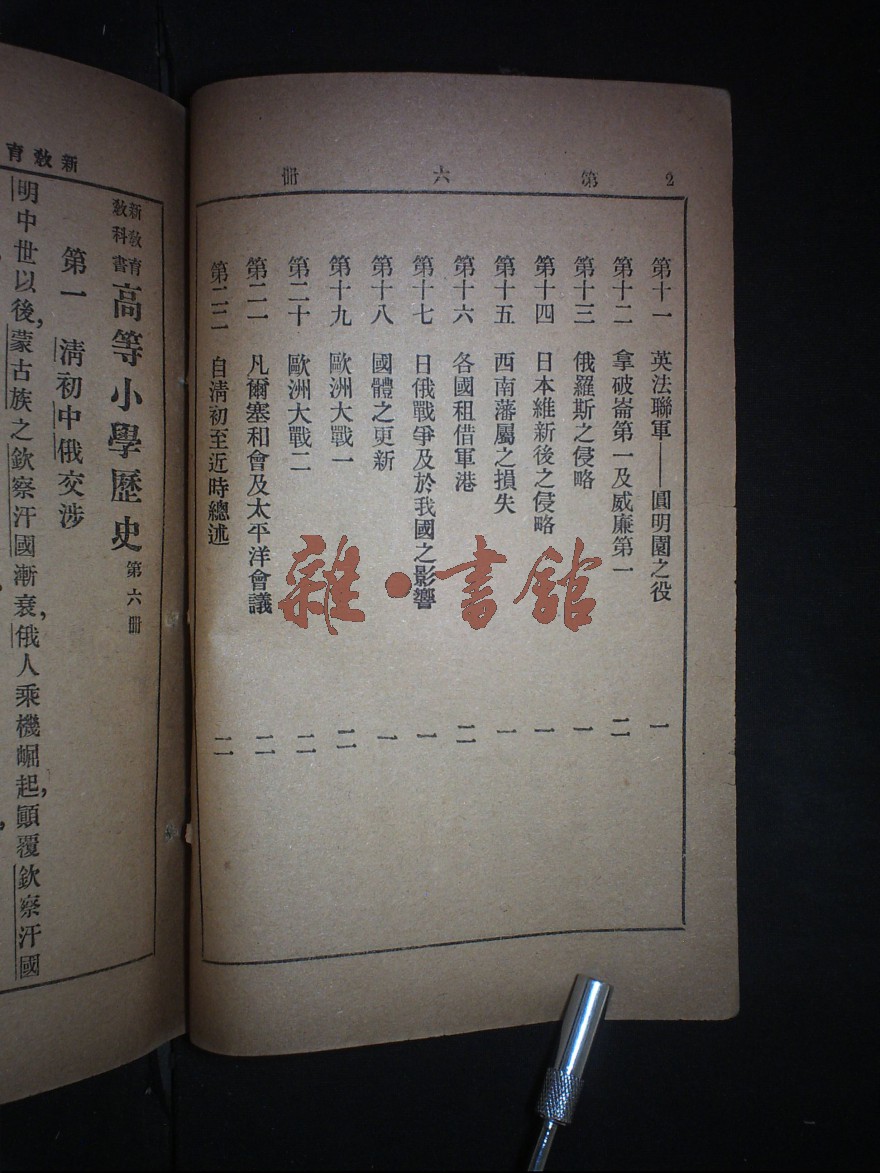 2 第六冊
第十一 英法聯軍——圓明園之役 一
第十二 拿破崙第一及威廉第一 二
第十三 俄羅斯之侵略 一
第十四 日本維新後之侵略 一
第十五 西南藩屬之損失 一
第十六 各國租借軍港 二
第十七 日俄戰爭及於我國之影響 一
第十八 國體之更新 一
第十九 歐洲大戰一 二
第二十 歐洲大戰二 二
第二一 凡爾塞和會及太平洋會議 二
第二二 自淸初至近時總述 二
雜·書館
新敎育
新敎育敎科書 高等小學歷史 第六冊
第一 淸初中俄交涉
明中世以後，蒙古族之欽察汗國漸衰，俄人乘機崛起，顚覆欽察汗國